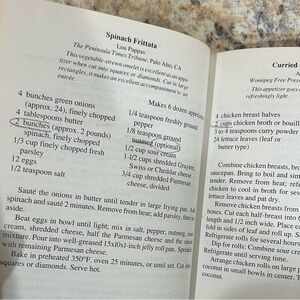 Spinach Frittata
Lou Pappas
The Peninsula Times Tribune, Palo Alto, CA
This vegetable-strewn omelet is excellent as an appe-
tizer when cut into squares or diamonds. Cut in large
rectangles, it makes an excellent accompaniment to an
entrée.
Makes 6 dozen appetizers
4 bunches green onions
(approx. 24), finely chopped
4 tablespoons butter
2 bunches (approx. 2 pounds)
spinach, finely chopped
1/3 cup finely chopped fresh
parsley
12 eggs
1/2 teaspoon salt
1/4 teaspoon freshly ground
pepper
1/8 teaspoon ground
nutmeg (optional)
1/2 cup sour cream
1-1/2 cups shredded Gruyère,
Swiss or Cheddar cheese
3/4 cup shredded Parmesan
cheese, divided
Sauté the onions in butter until tender in large frying pan. Add
spinach and sauté 2 minutes. Remove from heat; add parsley, then set
aside.
Beat eggs in bowl until light; mix in salt, pepper, nutmeg, sour
cream, shredded cheese, half the Parmesan cheese and the onion
mixture. Pour into well-greased 15x10x1-inch jellyroll pan. Sprinkle
with remaining Parmesan cheese.
Bake in preheated 350°F. oven 25 minutes, or until set. Cut into
squares or diamonds. Serve hot.
Curried
Winnipeg Free Press
This appetizer goes
refreshingly light.
4 chicken breast halves
2 cups chicken broth or bouillon
3 to 4 teaspoons curry powder
24 lettuce leaves (leaf or
butter type)
Combine chicken breasts, broth
and curry powder. Bring to
tender. Remove from heat; refrigerate
chicken to cool in broth for several
lettuce leaves and pat dry.
Remove chicken from broth;
bones. Cut each half-breast into
length and 1/2 inch wide. Place each
fold in sides of leaf and roll up. S
Refrigerate rolls for several hours
Dip for rolls: Combine
Refrigerate until serving time.
Arrange chicken rolls on large p
coconut in small bowls in center. T
coconut.